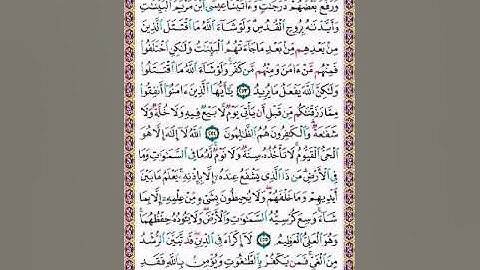 وَرَفَعَ بَعْضَهُمْ دَرَجَٰتٍ وَءَاتَيْنَا عِيسَى ٱبْنَ مَرْيَمَ ٱلْبَيِّنَٰتِ
وَأَيَّدْنَٰهُ بِرُوحِ ٱلْقُدُسِ وَلَوْ شَآءَ ٱللَّهُ مَا ٱقْتَتَلَ ٱلَّذِينَ
مِنۢ بَعْدِهِم مِّنۢ بَعْدِ مَا جَآءَتْهُمُ ٱلْبَيِّنَٰتُ وَلَٰكِنِ ٱخْتَلَفُوا۟
فَمِنْهُم مَّنْ ءَامَنَ وَمِنْهُم مَّن كَفَرَ وَلَوْ شَآءَ ٱللَّهُ مَا ٱقْتَتَلُوا۟
وَلَٰكِنَّ ٱللَّهَ يَفْعَلُ مَا يُرِيدُ ٢٥٣ يَٰٓأَيُّهَا ٱلَّذِينَ ءَامَنُوٓا۟ أَنفِقُوا۟
مِمَّا رَزَقْنَٰكُم مِّن قَبْلِ أَن يَأْتِىَ يَوْمٌ لَّا بَيْعٌ فِيهِ وَلَا خُلَّةٌ وَلَا
شَفَٰعَةٌ وَٱلْكَٰفِرُونَ هُمُ ٱلظَّٰلِمُونَ ٢٥٤ ٱللَّهُ لَآ إِلَٰهَ إِلَّا هُوَ
ٱلْحَىُّ ٱلْقَيُّومُ لَا تَأْخُذُهُۥ سِنَةٌ وَلَا نَوْمٌ لَّهُۥ مَا فِى ٱلسَّمَٰوَٰتِ وَمَا
فِى ٱلْأَرْضِ مَن ذَا ٱلَّذِى يَشْفَعُ عِندَهُۥٓ إِلَّا بِإِذْنِهِۦ يَعْلَمُ مَا بَيْنَ
أَيْدِيهِمْ وَمَا خَلْفَهُمْ وَلَا يُحِيطُونَ بِشَىْءٍ مِّنْ عِلْمِهِۦٓ إِلَّا بِمَا
شَآءَ وَسِعَ كُرْسِيُّهُ ٱلسَّمَٰوَٰتِ وَٱلْأَرْضَ وَلَا يَـُٔودُهُۥ حِفْظُهُمَا
وَهُوَ ٱلْعَلِىُّ ٱلْعَظِيمُ ٢٥٥ لَآ إِكْرَاهَ فِى ٱلدِّينِ قَد تَّبَيَّنَ ٱلرُّشْدُ
مِنَ ٱلْغَىِّ فَمَن يَكْفُرْ بِٱلطَّٰغُوتِ وَيُؤْمِنۢ بِٱللَّهِ فَقَدِ